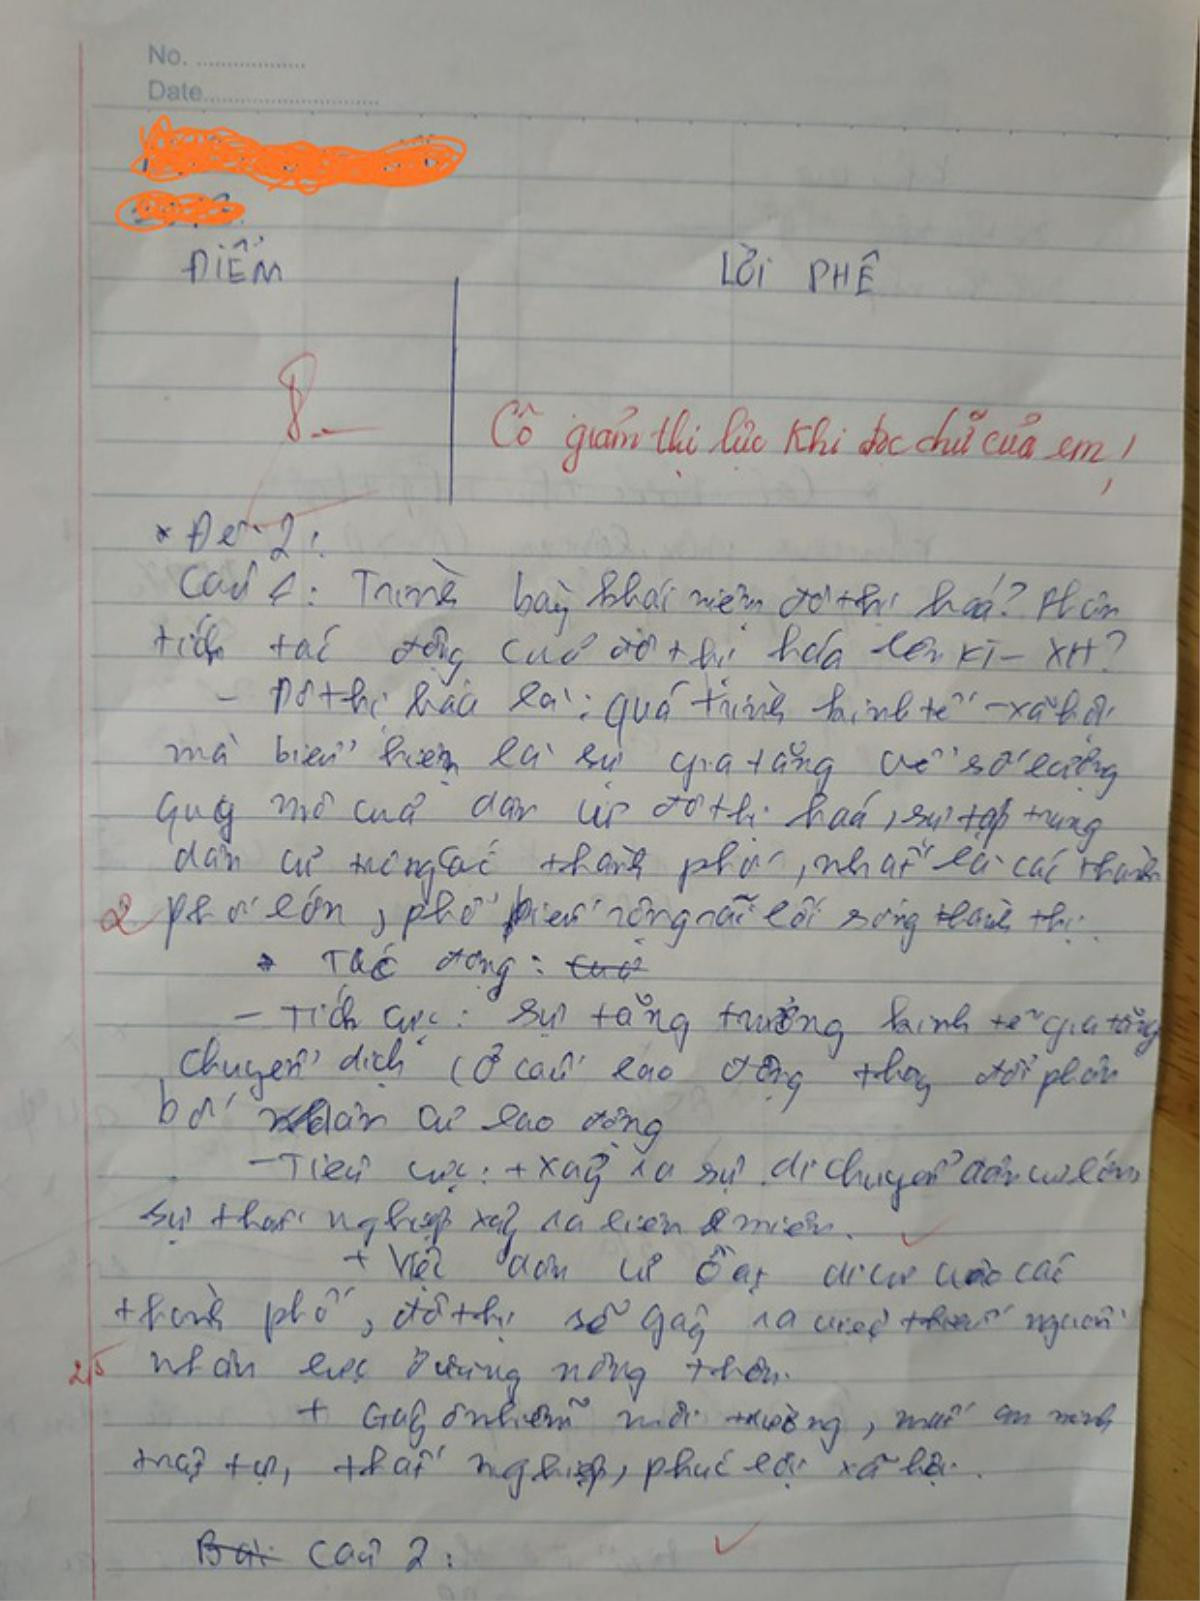 No. ..................
Date.............................
ĐIỂM
LỜI PHÊ
8.
Cô giảm thị lực khi đọc chữ của em!
* Đề 2:
Câu 1: Trình bày khái niệm đô thị hoá? Phân
tích tác động của đô thị hóa lên KT - XH?
- Đô thị hóa là: quá trình kinh tế - xã hội
mà biểu hiện là sự gia tăng về số lượng
quy mô của dân cư đô thị hoá, sự tập trung
dân cư trong các thành phố, nhất là các thành
2 phố lớn, phổ biến rộng rãi lối sống thành thị.
* Tác động: của
- Tích cực: sự tăng trưởng kinh tế gia tăng
chuyển dịch cơ cấu lao động thay đổi phân
bố dân cư lao động
- Tiêu cực: + Xảy ra sự di chuyển dân cư lớn
sự thất nghiệp xảy ra liên miên.
+ Việc dân cư ồ ạt di cư vào các
thành phố, đô thị sẽ gây ra việc thiếu nguồn
2,5 nhân lực ở vùng nông thôn.
+ Gây ô nhiễm môi trường, mất an ninh
trật tự, thất nghiệp, phúc lợi xã hội.
Bài Câu 2: